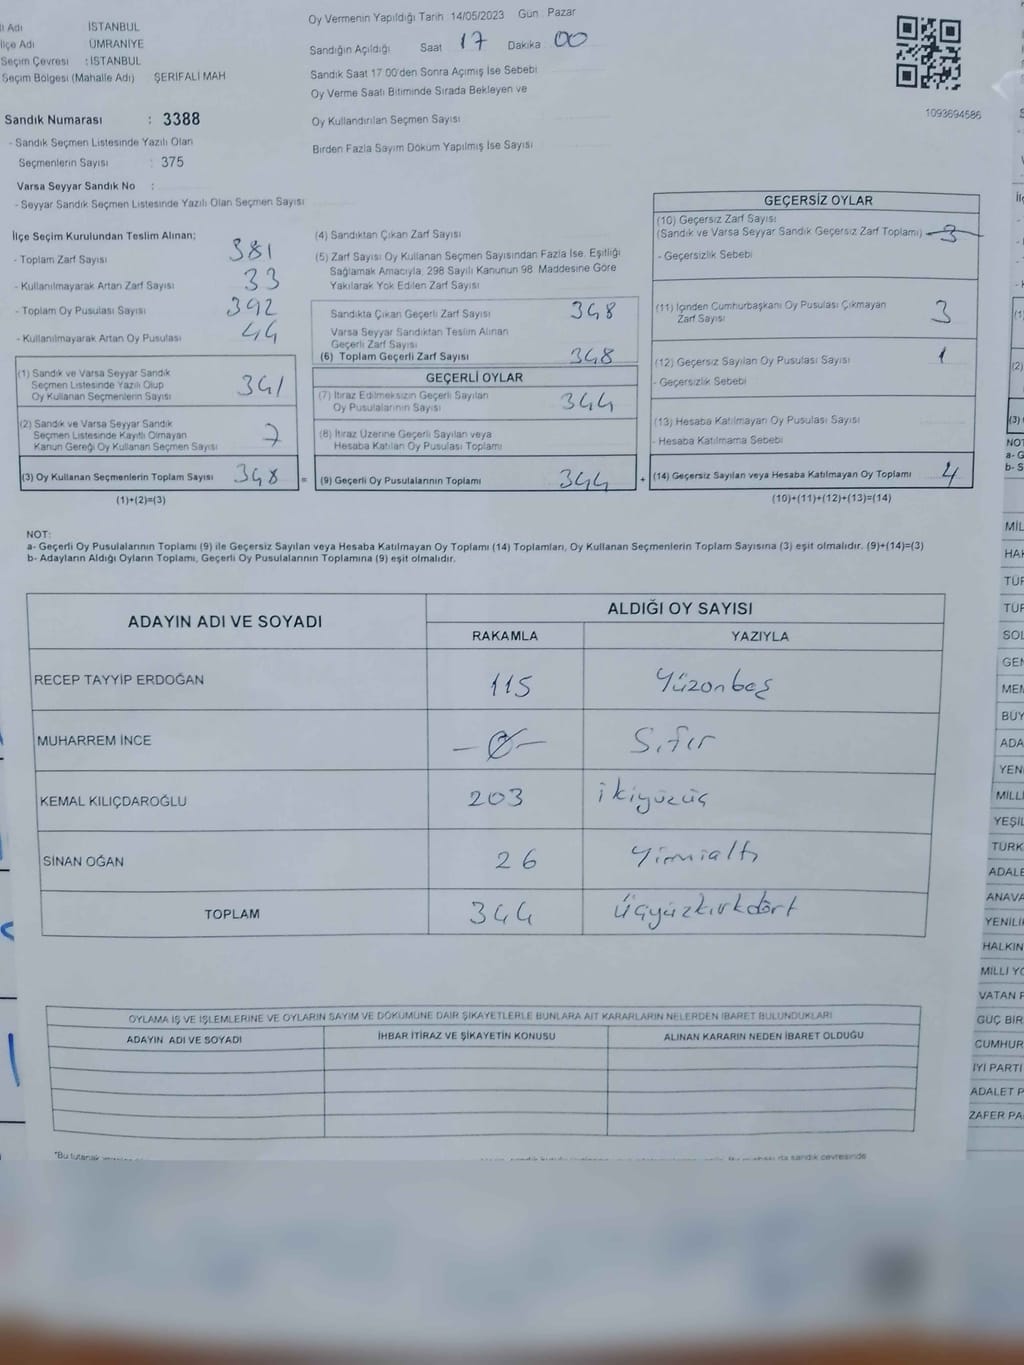 İSTANBUL
ÜMRANİYE
Seçim Çevresi : İSTANBUL
Seçim Bölgesi (Mahalle Adı) ŞERİFALİ MAH
Sandık Numarası : 3388
- Sandık Seçmen Listesinde Yazılı Olan
Seçmenlerin Sayısı : 375
Varsa Seyyar Sandık No :
- Seyyar Sandık Seçmen Listesinde Yazılı Olan Seçmen Sayısı
Oy Vermenin Yapıldığı Tarih 14/05/2023 Gün : Pazar
Sandığın Açıldığı Saat 17 Dakika 00
Sandık Saat 17 00'den Sonra Açımış İse Sebebi
Oy Verme Saati Bitiminde Sırada Bekleyen ve
Oy Kullandırılan Seçmen Sayısı
Birden Fazla Sayım Döküm Yapılmış İse Sayısı
1093694586
İlçe Seçim Kurulundan Teslim Alınan;
- Toplam Zarf Sayısı 381
- Kullanılmayarak Artan Zarf Sayısı 33
- Toplam Oy Pusulası Sayısı 392
- Kullanılmayarak Artan Oy Pusulası 44
(1) Sandık ve Varsa Seyyar Sandık
Seçmen Listesinde Yazılı Olup
Oy Kullanan Seçmenlerin Sayısı 341
(2) Sandık ve Varsa Seyyar Sandık
Seçmen Listesinde Kayıtlı Olmayan
Kanun Gereği Oy Kullanan Seçmen Sayısı 7
(3) Oy Kullanan Seçmenlerin Toplam Sayısı 348 =
(1)+(2)=(3)
(4) Sandıktan Çıkan Zarf Sayısı
(5) Zarf Sayısı Oy Kullanan Seçmen Sayısından Fazla İse, Eşitliği
Sağlamak Amacıyla, 298 Sayılı Kanunun 98. Maddesine Göre
Yakılarak Yok Edilen Zarf Sayısı
Sandıkta Çıkan Geçerli Zarf Sayısı 348
Varsa Seyyar Sandıktan Teslim Alınan
Geçerli Zarf Sayısı
(6) Toplam Geçerli Zarf Sayısı 348
GEÇERLİ OYLAR
(7) İtiraz Edilmeksizin Geçerli Sayılan
Oy Pusulalarının Sayısı 344
(8) İtiraz Üzerine Geçerli Sayılan veya
Hesaba Katılan Oy Pusulaları Toplamı
(9) Geçerli Oy Pusulalarının Toplamı 344 +
GEÇERSİZ OYLAR
(10) Geçersiz Zarf Sayısı
(Sandık ve Varsa Seyyar Sandık Geçersiz Zarf Toplamı) 3
- Geçersizlik Sebebi
(11) İçinden Cumhurbaşkanı Oy Pusulası Çıkmayan
Zarf Sayısı 3
(12) Geçersiz Sayılan Oy Pusulası Sayısı 1
- Geçersizlik Sebebi
(13) Hesaba Katılmayan Oy Pusulası Sayısı
- Hesaba Katılmama Sebebi
(14) Geçersiz Sayılan veya Hesaba Katılmayan Oy Toplamı 4
(10)+(11)+(12)+(13)=(14)
NOT:
a- Geçerli Oy Pusulalarının Toplamı (9) ile Geçersiz Sayılan veya Hesaba Katılmayan Oy Toplamı (14) Toplamları, Oy Kullanan Seçmenlerin Toplam Sayısına (3) eşit olmalıdır. (9)+(14)=(3)
b- Adayların Aldığı Oyların Toplamı, Geçerli Oy Pusulalarının Toplamına (9) eşit olmalıdır.
ADAYIN ADI VE SOYADI ALDIĞI OY SAYISI
RAKAMLA YAZIYLA
RECEP TAYYİP ERDOĞAN 115 Yüzonbeş
MUHARREM İNCE -0- Sıfır
KEMAL KILIÇDAROĞLU 203 ikiyüzüç
SİNAN OĞAN 26 Yirmialtı
TOPLAM 344 Üçyüzkırkdört
OYLAMA İŞ VE İŞLEMLERİNE VE OYLARIN SAYIM VE DÖKÜMÜNE DAİR ŞİKAYETLERLE BUNLARA AİT KARARLARIN NELERDEN İBARET BULUNDUKLARI
ADAYIN ADI VE SOYADI İHBAR İTİRAZ VE ŞİKAYETİN KONUSU ALINAN KARARIN NEDEN İBARET OLDUĞU
*Bu tutanak
sandık çevresinde
NOT
MİL
HAK
TÜR
TÜR
SOL
GEN
MEM
BÜY
ADA
YENİ
MİLLİ
YEŞİL
TÜRK
ADALE
ANAVA
YENİLİ
HALKIN
MİLLİ YO
VATAN P
GÜÇ BİR
CUMHUR
İYİ PARTİ
ADALET P
ZAFER PA